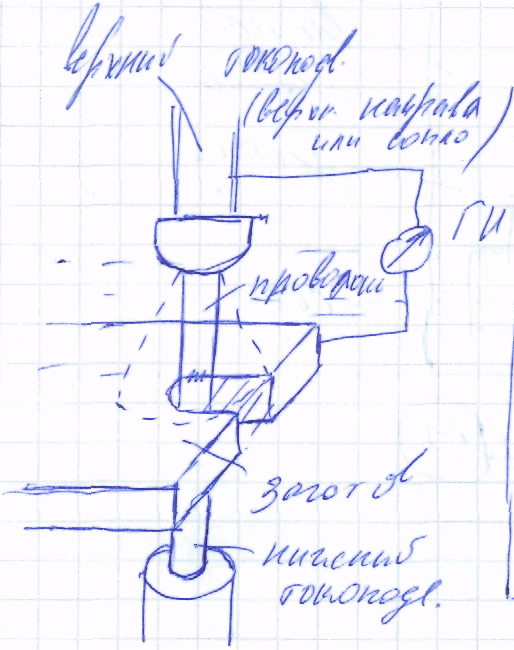 верхний токоподв.
(верхн. направл
или сопло)
ГИ
проволоч
заготов
нижний
токоподв.